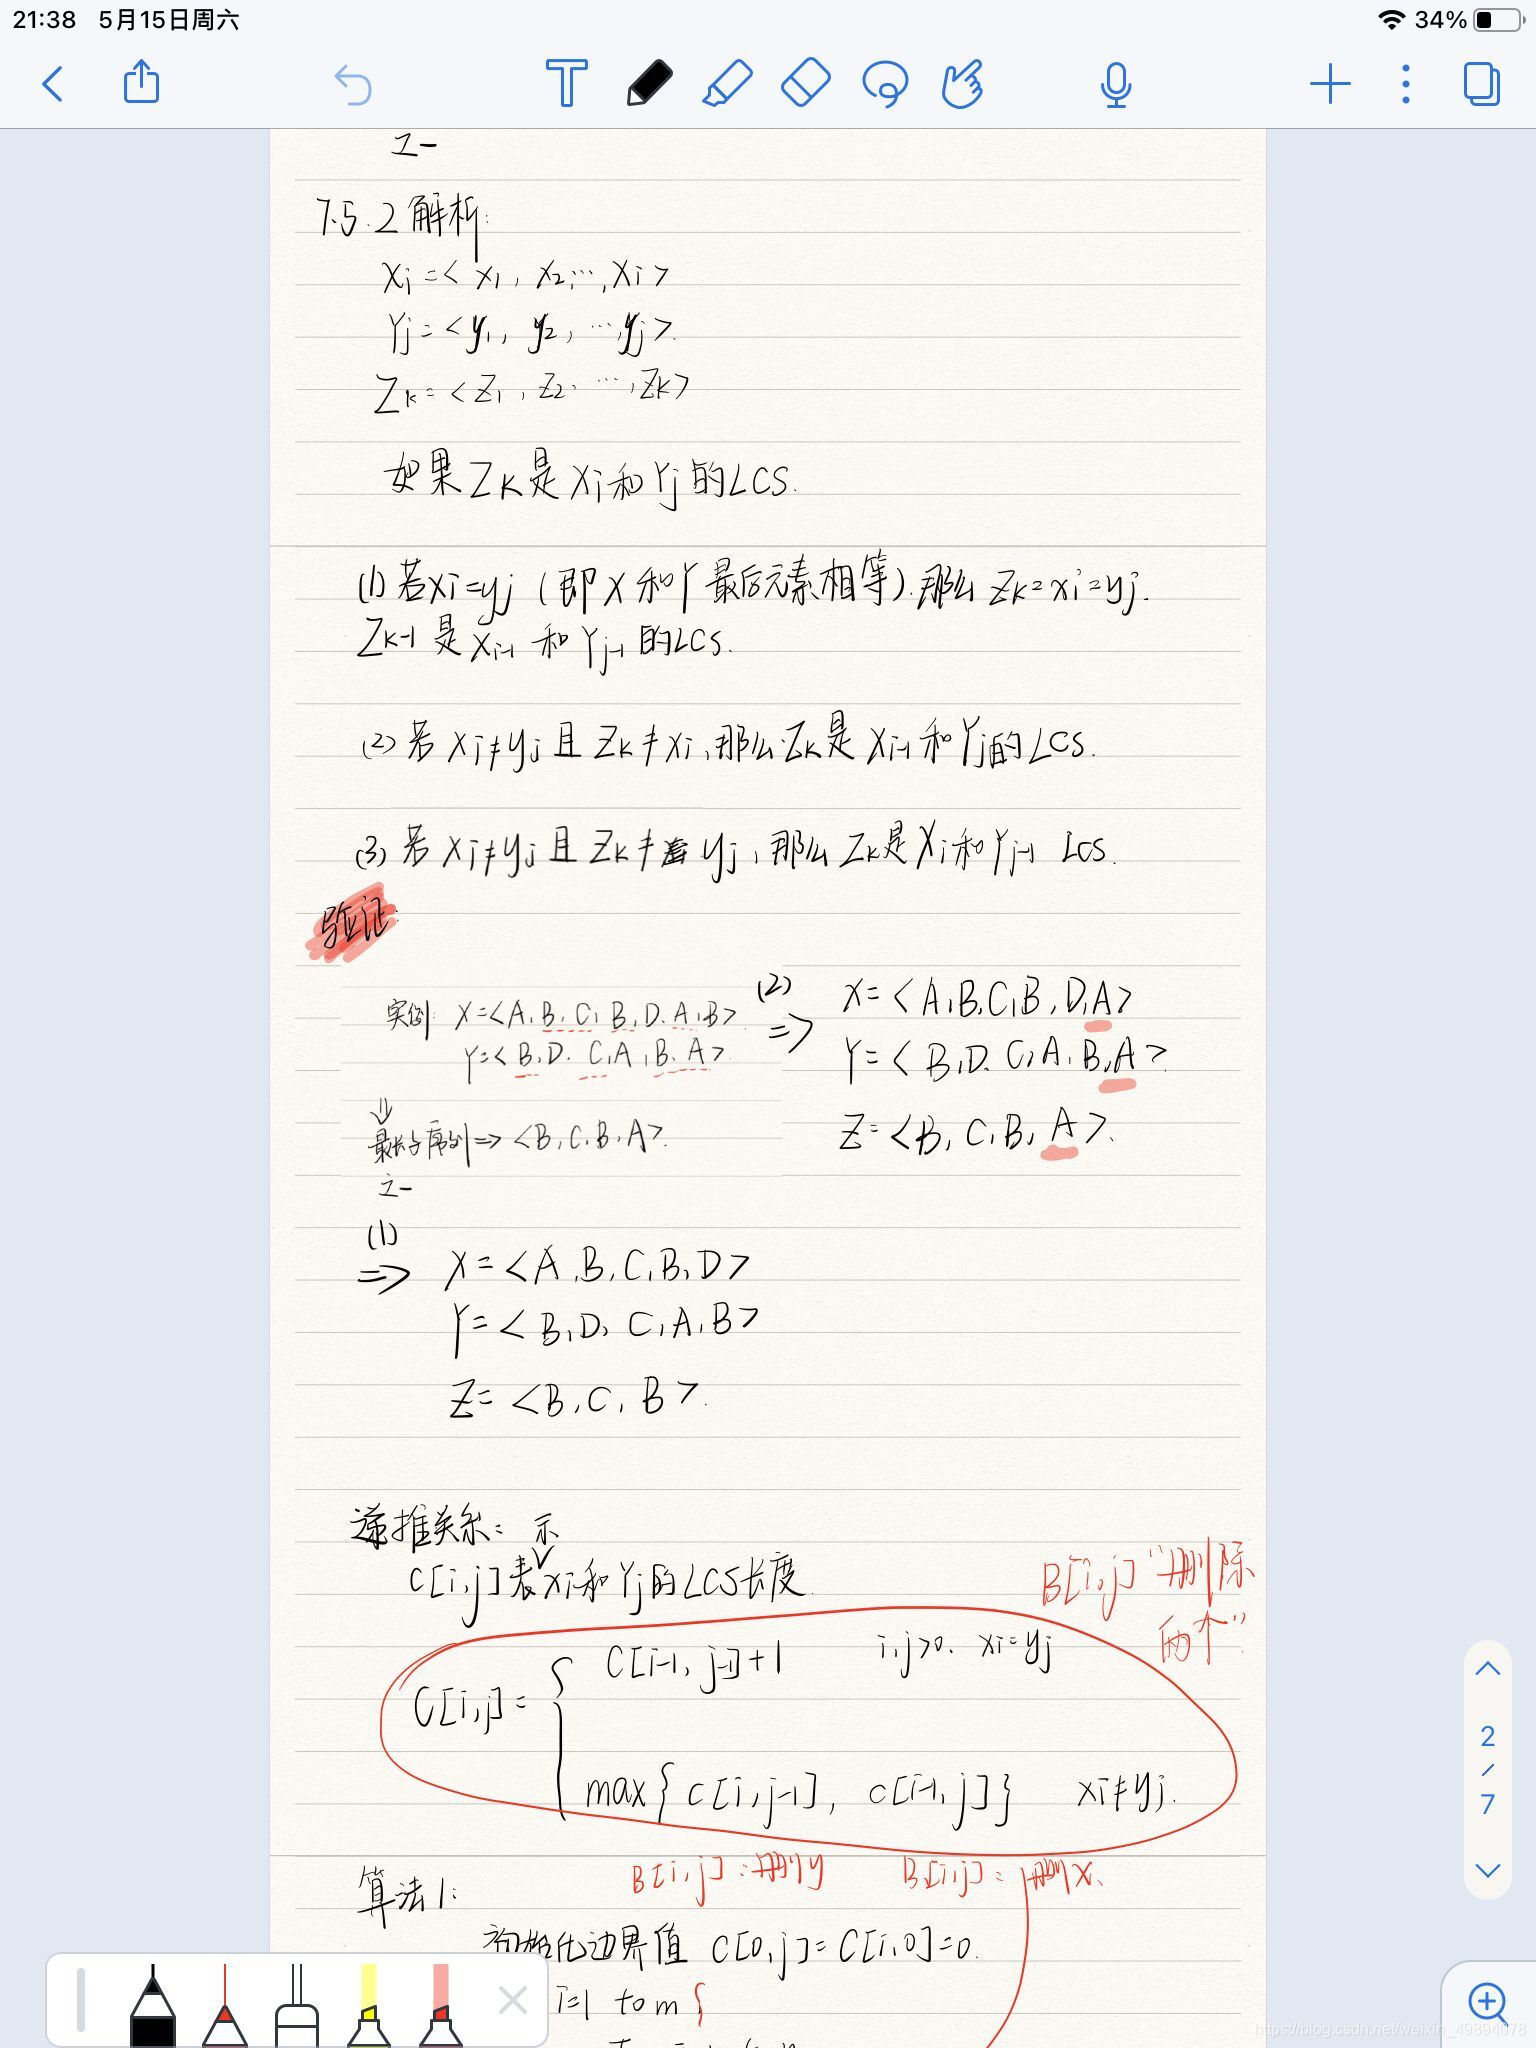 21:38 5月15日周六 34%
之一
7.5.2解析:
Xi=<x1, x2,…,xi>
Yj=<y1, y2, …,yj>.
Zk=<z1, z2, …,zk>
如果Zk是Xi和Yj的LCS.
(1)若xi=yj(即X和Y最后元素相等).那么 zk=xi=yj.
Zk-1是Xi-1和Yj-1的LCS.
(2)若xi≠yj且zk≠xi,那么Zk是Xi-1和Yj的LCS.
(3)若xi≠yj且zk≠yj,那么Zk是Xi和Yj-1 LCS.
验证:
实例: X=<A,B,C,B,D,A,B>
Y=<B,D.C,A,B,A>.
⇓
最长子序列⇒<B,C,B,A>.
之一
(2)
⇒ X=<A,B,C,B,D,A>
Y=<B,D.C,A,B,A>.
Z=<B,C,B,A>.
(1)
⇒ X=<A,B,C,B,D>
Y=<B,D,C,A,B>
Z=<B,C,B>.
递推关系: 示
C[i,j]表xi和Yj的LCS长度.
B[i,j]"删除
两个"
C[i,j]={ C[i-1,j-1]+1 i,j>0. xi=yj
max{c[i,j-1], c[i-1,j]} xi≠yj.
B[i,j]:删y B[i,j]=删x.
算法1:
初始化边界值 C[0,j]=C[i,0]=0.
i=1 to m {
2
/
7
https://blog.csdn.net/weixin_49894078